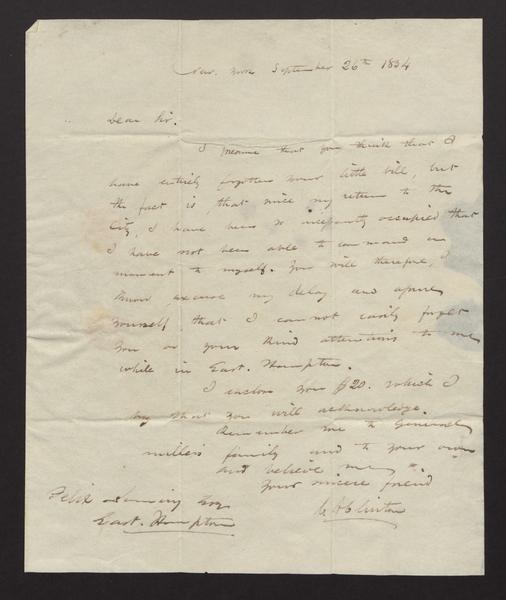 New York September 26th 1834
Dear Sir.
I presume that you think that I
have entirely forgotten your little bill, but
the fact is, that since my return to the
City, I have been so incessantly occupied that
I have not been able to command a
moment to myself. You will therefore, I
know excuse my delay and assure
yourself that I can not easily forget
you or your kind attentions to me
while in East. Hampton.
I inclose you $20. which I
beg that you will acknowledge.
Remember me to General
Miller's family and to your own
and believe me
Your sincere friend
Clinton
Felix Dominy Esq
East. Hampton